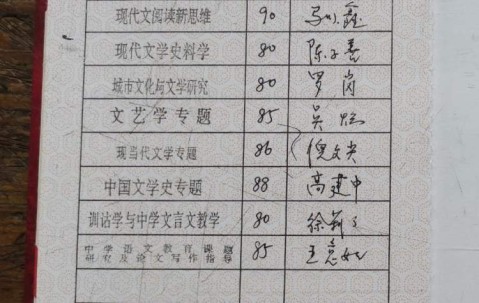 现代文阅读新思维 90
现代文学史料学 80 陈子善
城市文化与文学研究 80 罗岗
文艺学专题 85 吴
现当代文学专题 86 倪文尖
中国文学史专题 88 高建中
训诂学与中学文言文教学 80 徐莉莉
中学语文教育课题
研究及论文写作指导 85 王意如